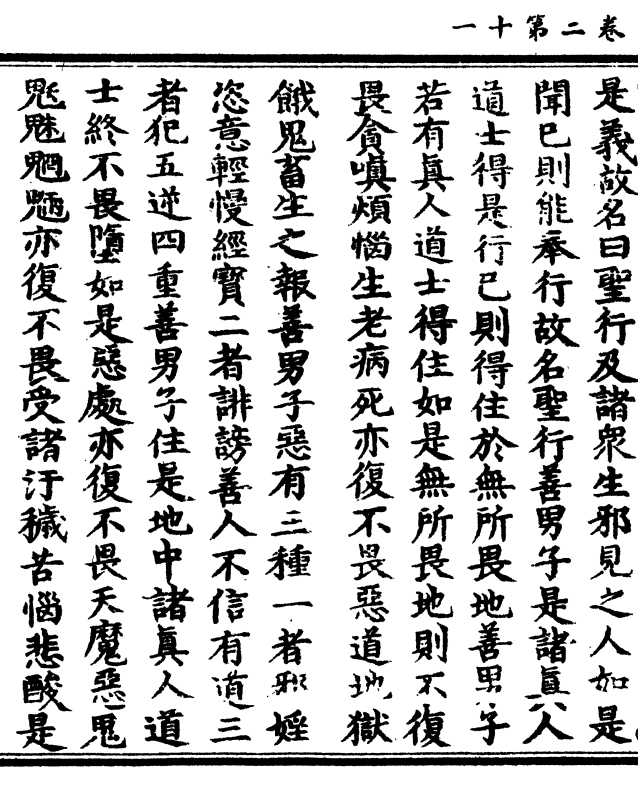 卷二第十一
是義故名曰聖行及諸衆生邪見之人如是
聞已則能奉行故名聖行善男子是諸眞人
道士得是行已則得住於無所畏地善男子
若有眞人道士得住如是無所畏地則不復
畏貪嗔煩惱生老病死亦復不畏惡道地獄
餓鬼畜生之報善男子惡有三種一者邪婬
恣意輕慢經寶二者誹謗善人不信有道三
者犯五逆四重善男子住是地中諸眞人道
士終不畏墮如是惡處亦復不畏天魔惡鬼
魅魍魎亦復不畏受諸汙穢苦惱悲酸是